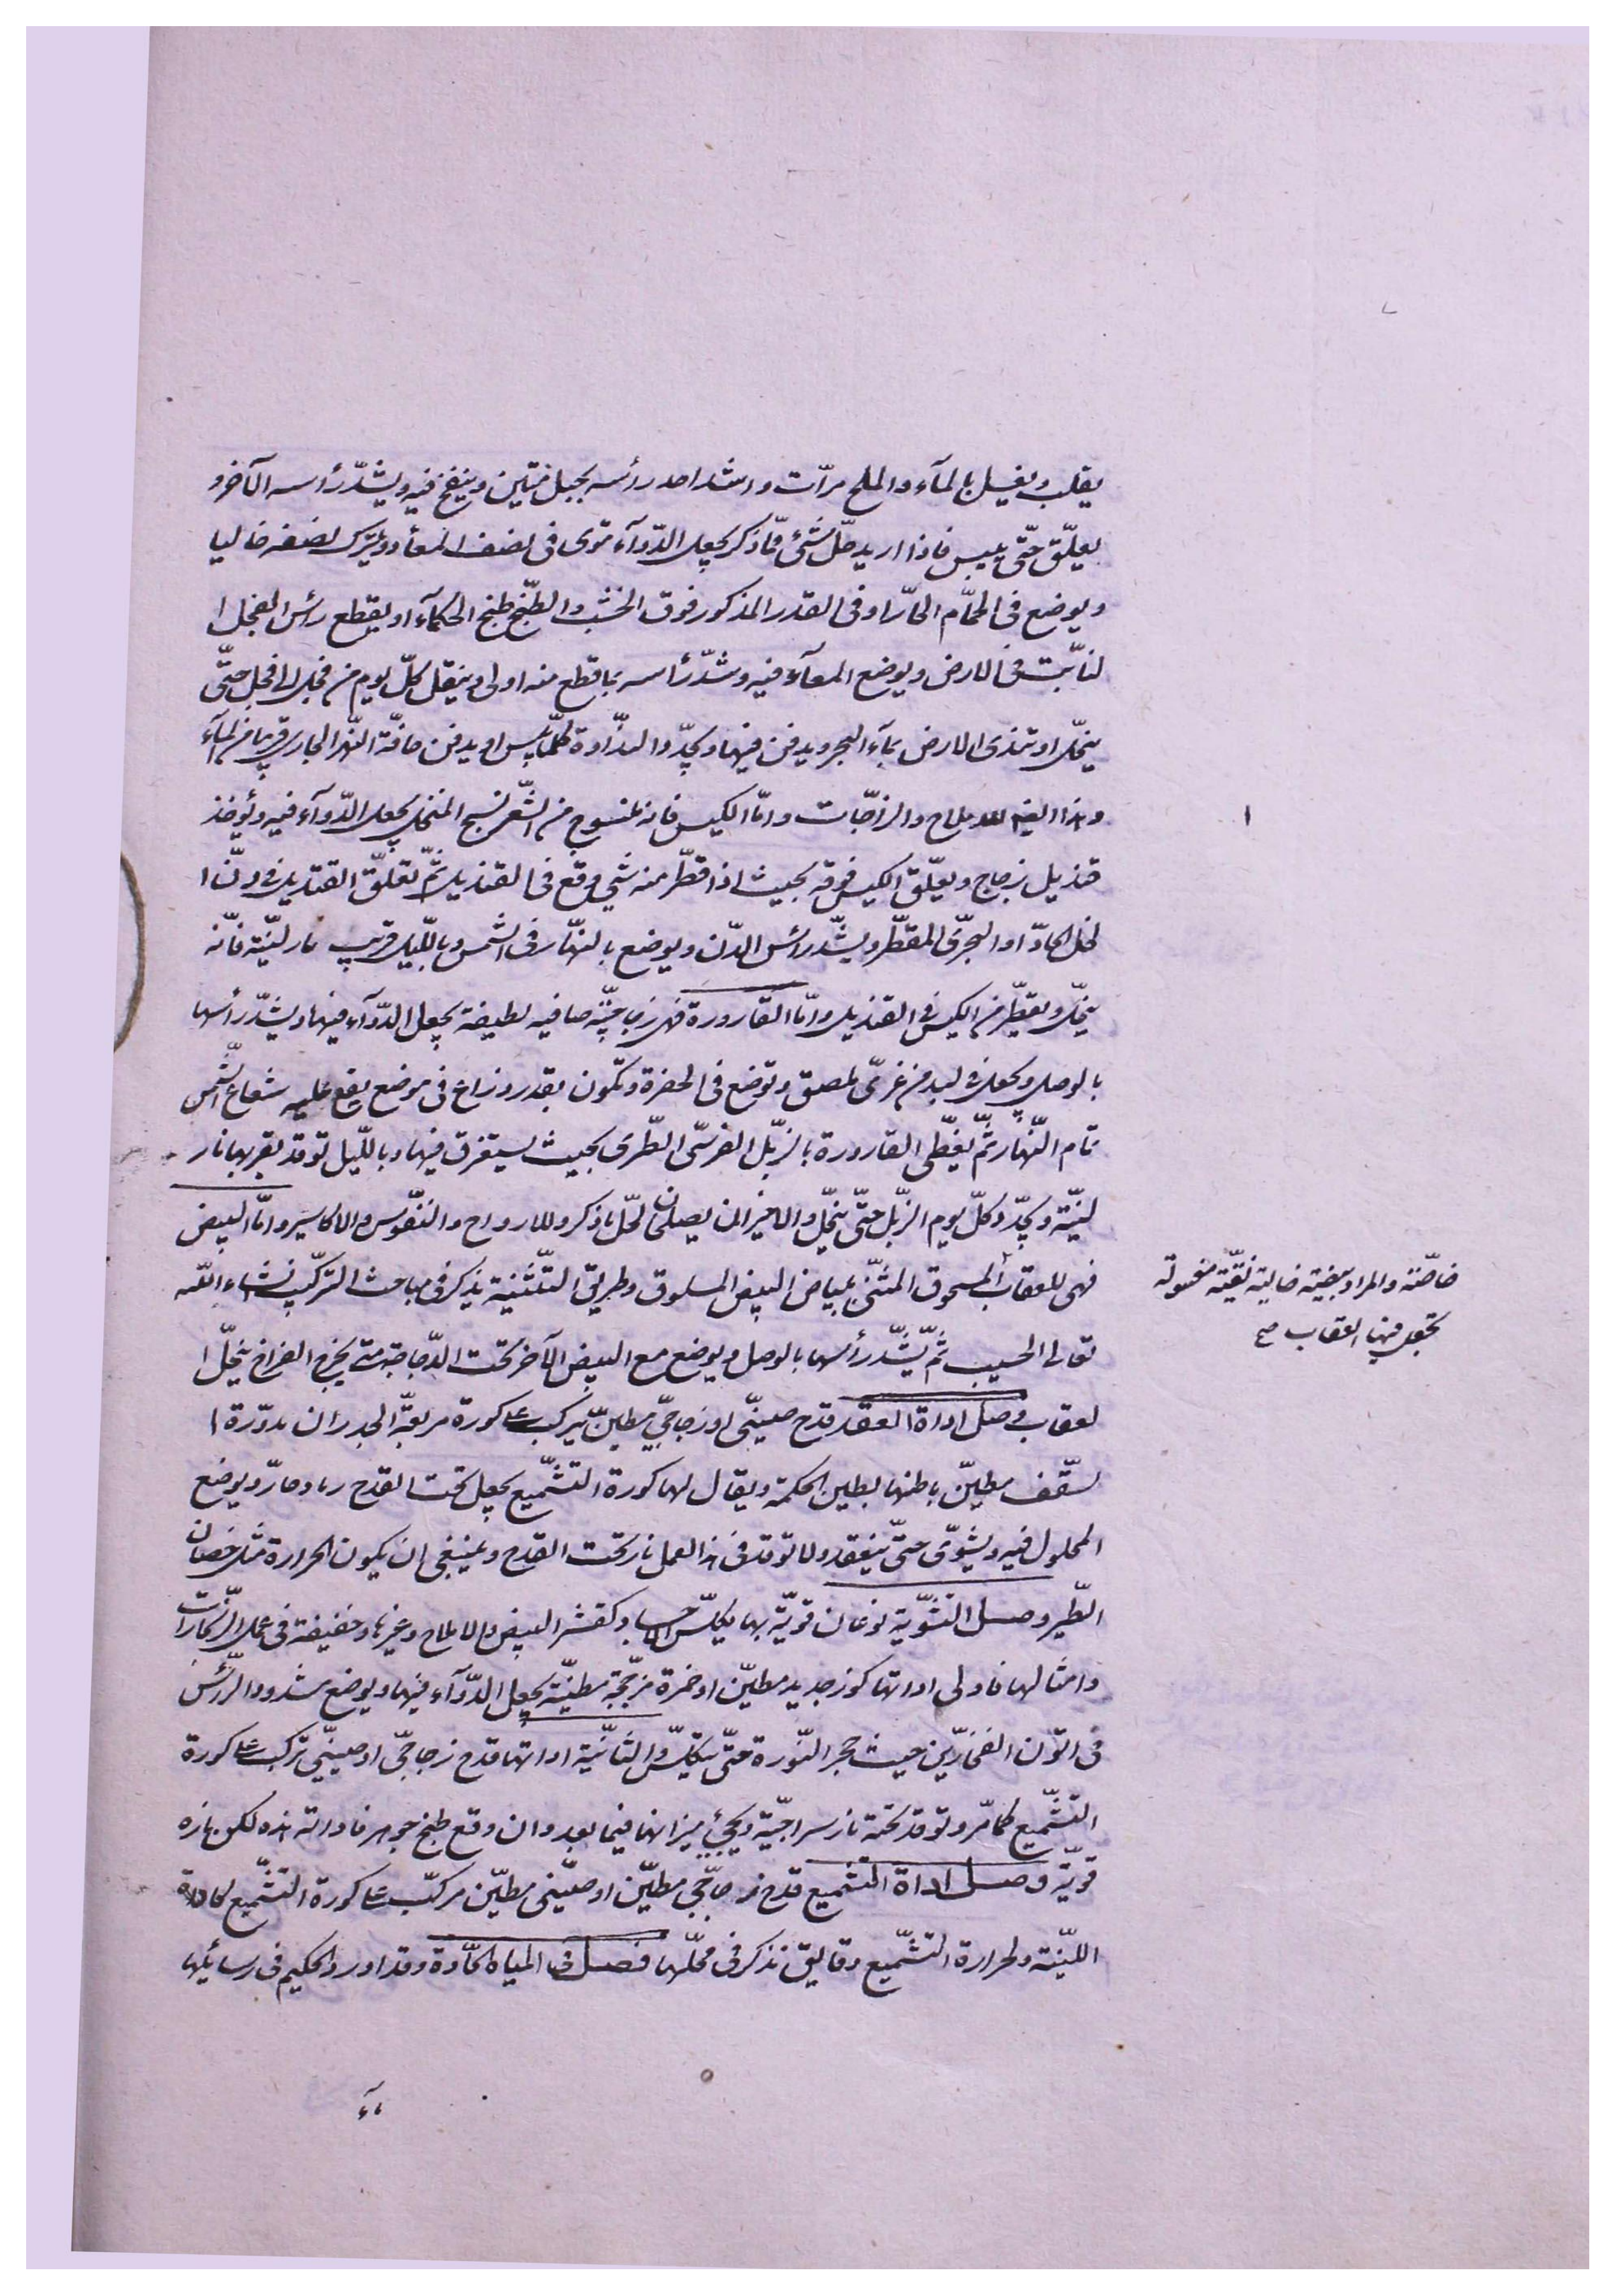 يقلب ويغسل بالمآء والملح مرّات واشد احد رأسه بحبل متين وينفخ فيه ويشدّ رأسه الآخر و
يعلّق حتّى ييبس فاذا اريد حلّ شئ ممّا ذكر يجعل الدّوآء فى نصف المعآء ويترك نصفه خاليا
ويوضع فى الحمّام الحارّ او فى القدر المذكور فوق الخشب والطّبخ طبخ الحكمآء او يقطع رأس الفجل ا
لنابت فى الارض ويوضع المعآء فيه وشدّ رأسه بما قطع منه اولى وينقل كلّ يوم من فجل الى فجل حتّى
ينحلّ او تندى الارض بمآء البحر ويدفن فيها ويجدّد النداوة كلّما يبس او يدفن حافّة النّهر الجارى قريبا من المآء
وهذا ايضا للاملاح والزاجات وامّا الكيس فانه منسوج من الشّعر نسج المنخل يجعل الدّوآء فيه ويؤخذ
قنديل زجاج ويعلّق الكيس فوقه بحيث اذا قطّر منه شئ وقع فى القنديل ثمّ تعلّق القنديل فى دنّ ا
لخل الحادّ او البحرى المقطّر ويشدّ رأس الدّن ويوضع بالنهار فى الشّمس وباللّيل قريب نار ليّنة فانّه
ينحلّ ويقطّر من الكيس فى القنديل وامّا القارورة فهى زجاجيّة صافيه لطيفة يجعل الدّوآء فيها ويشدّ رأسها
بالوصل ويجعل فى لبد من غرىّ ملصق وتوضع فى الحفرة وتكون بقدر ذراع فى موضع يقع عليه شعاع الشّمس
تمام النّهار ثمّ يغطّى القارورة بالزّبل الفرسىّ الطّرى بحيث يستغرق فيها وباللّيل توقد بقربها نار
ليّنة ويجدّد كلّ يوم الزّبل حتّى ينحلّ والاخيران يصلحان لحلّ ما ذكر وللارواح والنّفوس والاكاسير وامّا البيض
فهى للعقاب المسحوق المثنّى ببياض البيض المسلوق وطريق التّثنية يذكر فى مباحث التركيب نشاء اللّه
تعالى الحسيب ثمّ يشدّ رأسها بالوصل ويوضع مع البيض الآخر تحت الدّجاجة حتى يخرج الفراخ ينحلّ ا
لعقاب وصل اداة العقد قدح صينىّ او زجاجىّ مطيّن يركب على كورة مربعة الجدران مدوّرة ا
لسّقف مطيّن باطنها بطين الحكمة ويقال لها كورة التّشميع يجعل تحت القدح رماد حارّ ويوضع
المحلول فيه ويشوّى حتّى ينعقد ولا توقد فى هذا العمل نار تحت القدح وينبغى ان يكون الحرارة مثل حضان
الطّير وصل التّشوية نوعان قويّة بها يكلّس الاجساد وكقشر البيض والاملاح وغيرها وخفيفة فى عمل الزّنجارات
وامثالها فاولى اداتها كوز جديد مطيّن او خمرة مزجّجة مطيّنة يجعل الدّوآء فيها ويوضع مشدود الرّأس
فى اتون الفخّارين حيث حجر النّورة حتّى يتكلّس والثّانية اداتها قدح زجاجىّ او صينىّ تركب على كورة
التّشميع كما مرّ وتوقد تحته نار سراجيّة ويجئ ميزانها فيما بعد وان وقع طبخ جوهر فاداته هذه لكن ناره
قويّة وصل اداة التّشميع قدح زجاجىّ مطيّن او صينى مطيّن مركّب على كورة التّشميع
الليّنة ولحرارة التّشميع دقايق نذكر فى محلّها فصل فى المياه الحادّة وقد اورد الحكيم فى رسائلها
خاصّة والمراد ببيضة خالية نقيّة مغسولة
تجعل فيها العقاب صح